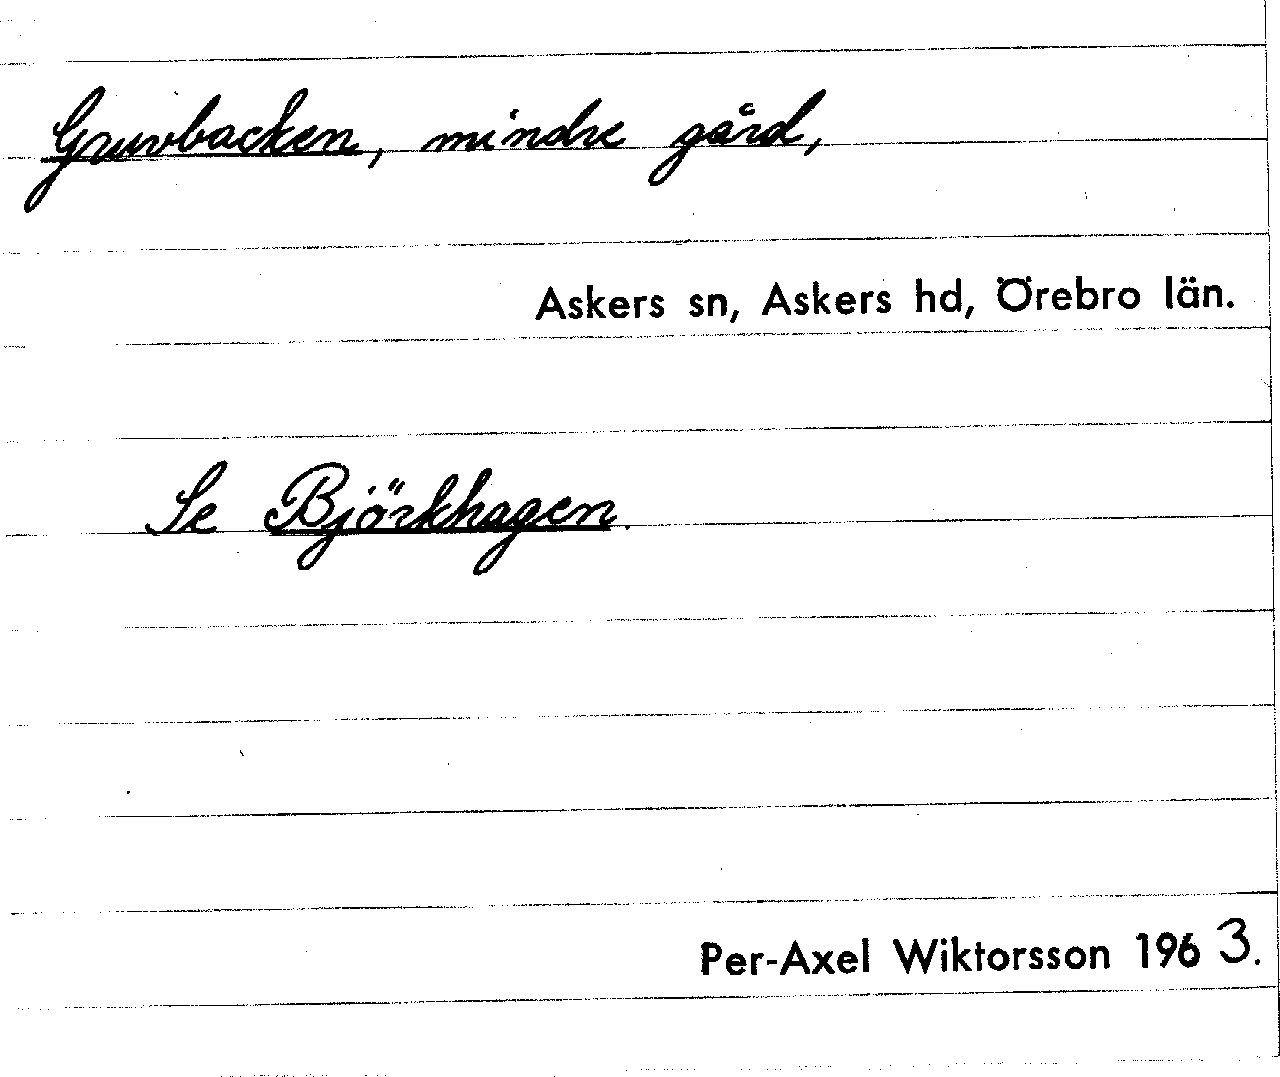 Gruvbacken, mindre gård,
Askers sn, Askers hd, Örebro län.
Se Björkhagen.
Per-Axel Wiktorsson 1963.